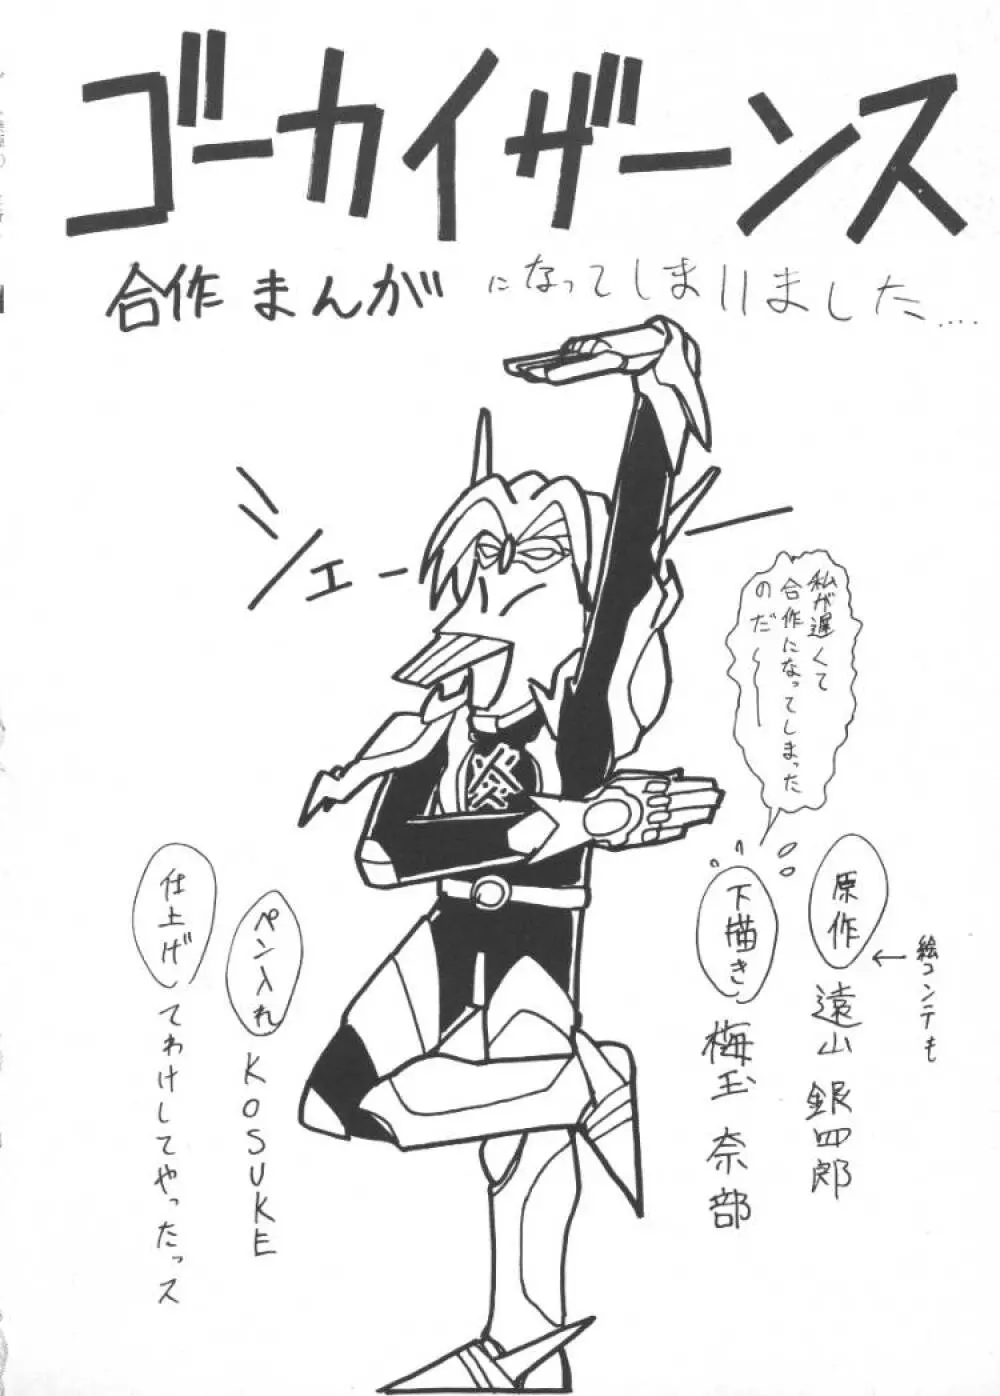 ゴーカイザーンス
合作まんがになってしまいました....
シェー
私が遅くて
合作になってしまった
のだ〜
原作 遠山銀四郎
←絵コンテも
下描き 梅玉奈部
ペン入れ KOSUKE
仕上げ てわけしてやったっス